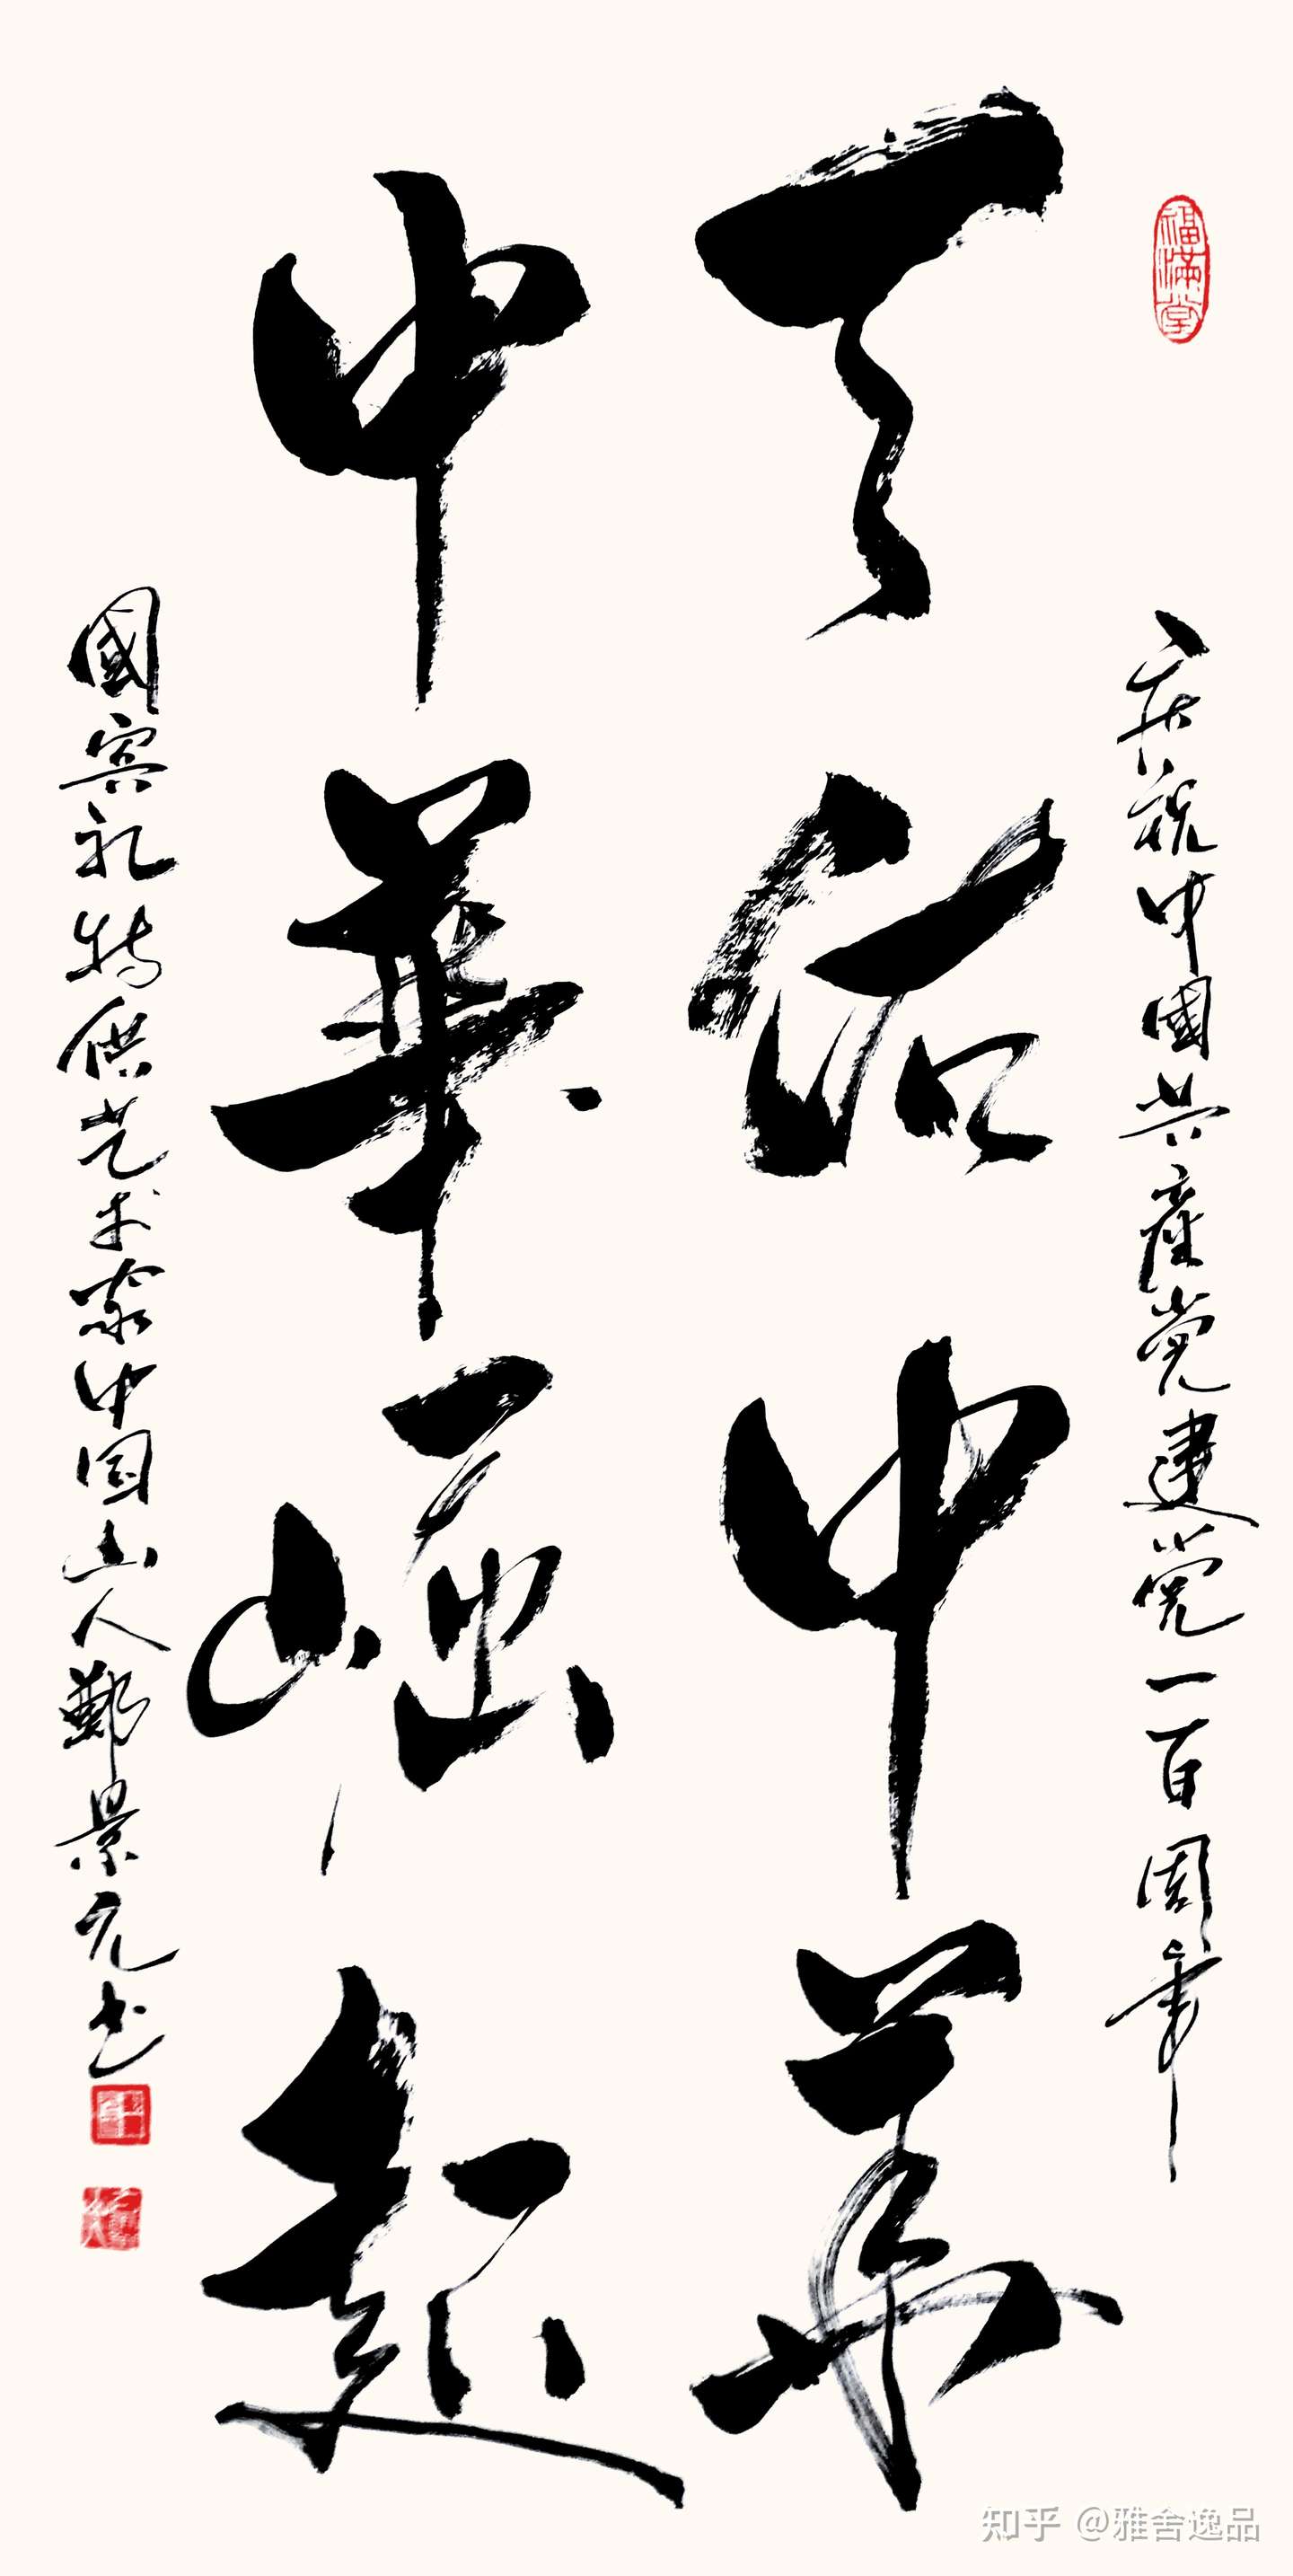 福满堂
庆祝中國共產党建党一百周年
天佑中华
中華崛起
國宾礼特供艺术家中国山人鄭景元书
知乎 @雅舍逸品